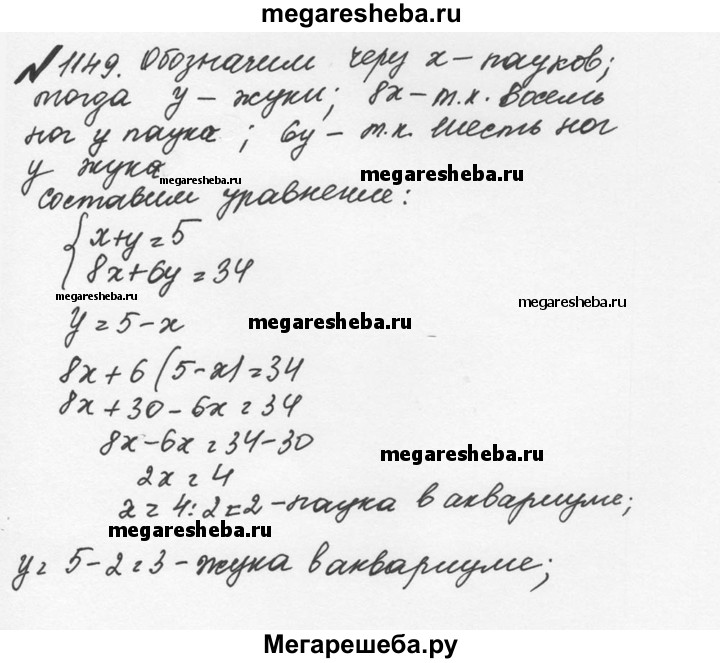 megaresheba.ru
№1149. Обозначим черу x – пауков;
тогда y – жуки; 8x – т.к. восемь
ног у паука; 6y – т.к. шесть ног
у жука
megaresheba.ru megaresheba.ru
составим уравнение:
{ x+y=5
8x+6y=34
megaresheba.ru megaresheba.ru
y=5-x megaresheba.ru
8x+6(5-x)=34
8x+30-6x=34
8x-6x=34-30 megaresheba.ru
2x=4
x=4:2=2 – паука в аквариуме;
megaresheba.ru
y=5-2=3 – жука в аквариуме;
Мегарешеба.ру